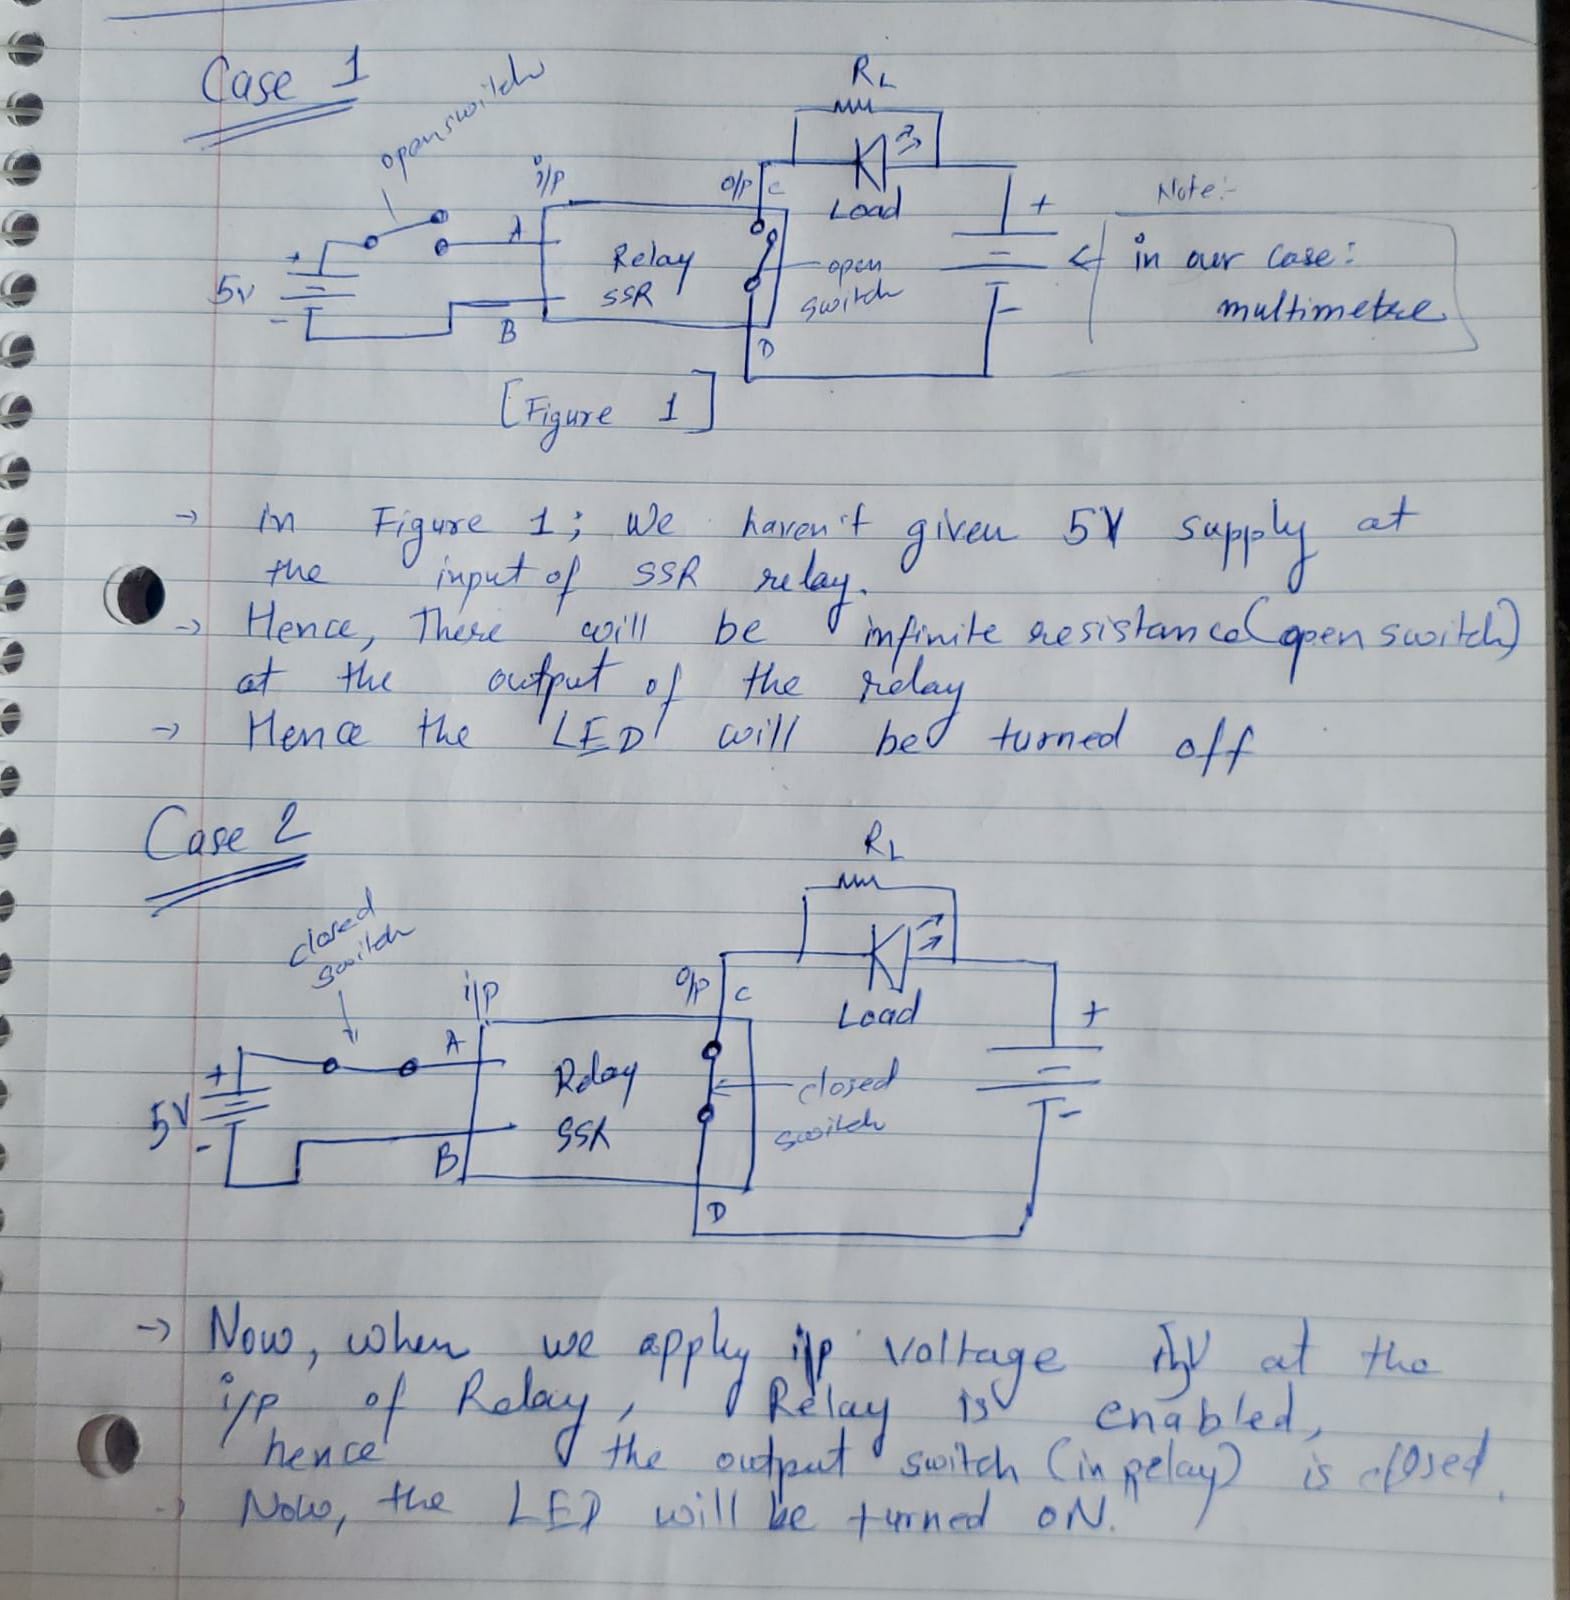 Case 1
open switch
RL
i/p
o/p
C
Load
+
Note:-
A
+
Relay
SSR
open
switch
in our case:
multimetre
5v
-
B
D
-
[Figure 1]
→ in Figure 1; We haven't given 5V supply at
the input of SSR relay.
→ Hence, There will be infinite resistance (open switch)
at the output of the relay
→ Hence the LED will be turned off
Case 2
RL
closed
switch
i/p
o/p
C
Load
+
A
+
Relay
SSR
closed
switch
5V
-
B
D
-
→ Now, when we apply i/p voltage 5V at the
i/p of Relay, Relay is enabled,
hence the output switch (in Relay) is closed.
→ Now, the LED will be turned ON.